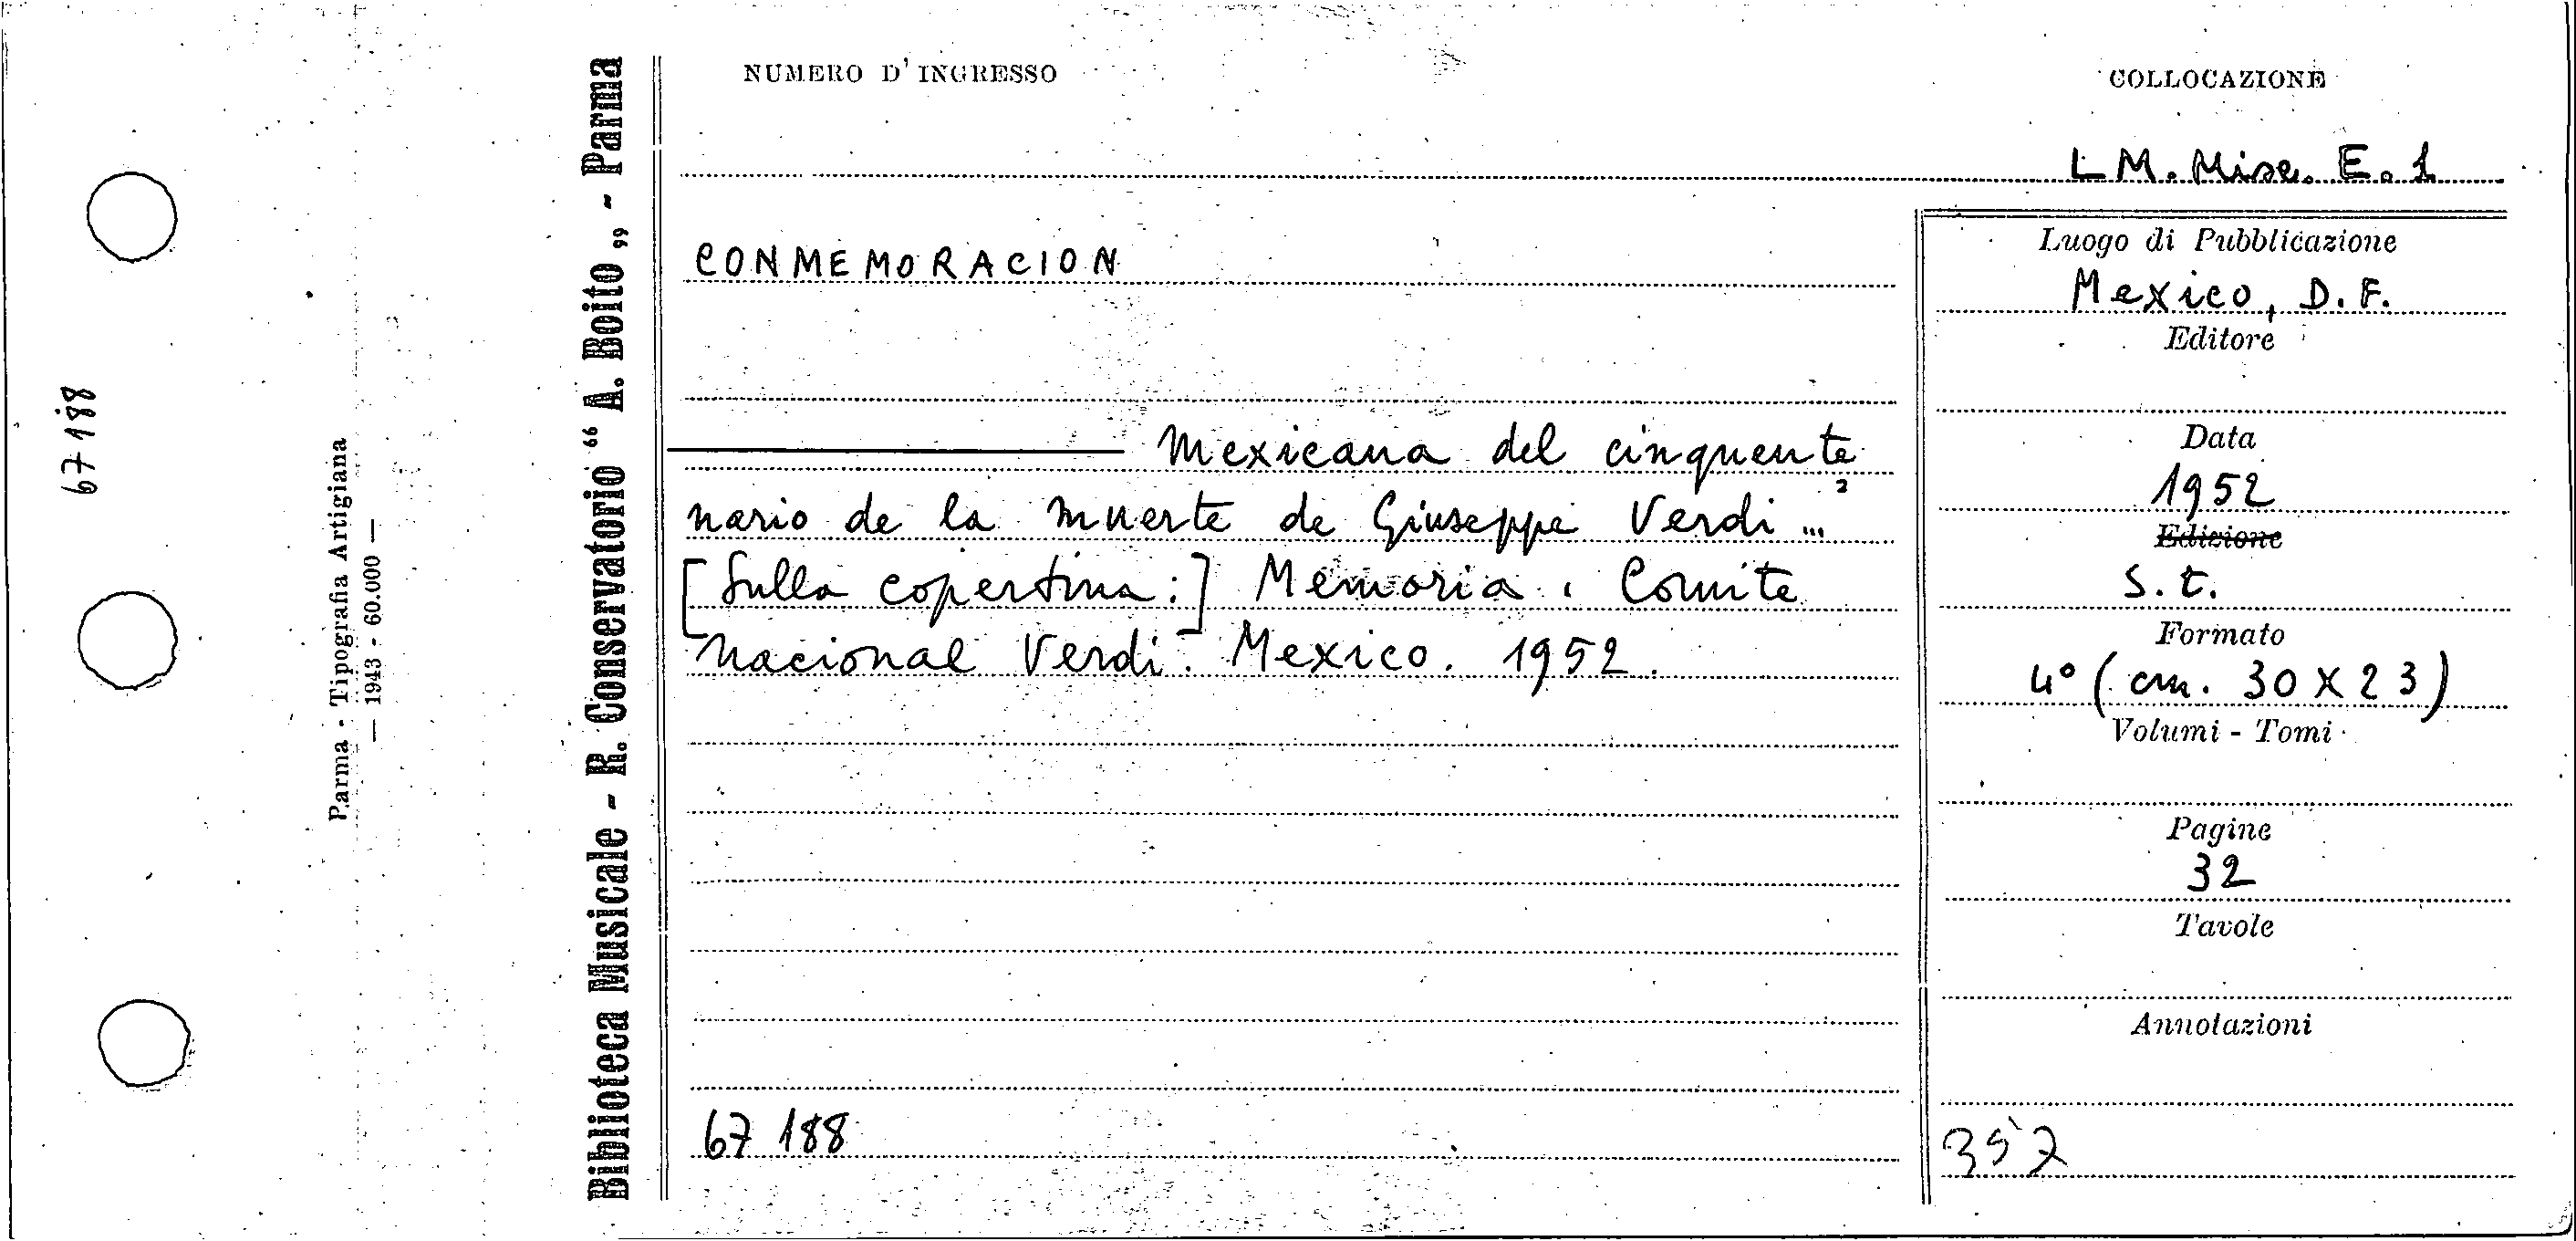 67188
Parma - Tipografia Artigiana
— 1943 - 60.000 —
Biblioteca Musicale - R. Conservatorio “ A. Boito „ - Parma
NUMERO D'INGRESSO
COLLOCAZIONE
L M. Misc. E. 1
CONMEMORACION
Mexicana del cinquente
nario de la muerte de Giuseppe Verdi ...
[Sulla copertina:] Memoria. Comite
Nacional Verdi. Mexico. 1952.
67 188
Luogo di Pubblicazione
Mexico, D.F.
Editore
Data
1952
Edizione
S. t.
Formato
4° (cm. 30 X 23)
Volumi - Tomi
Pagine
32
Tavole
Annotazioni
357